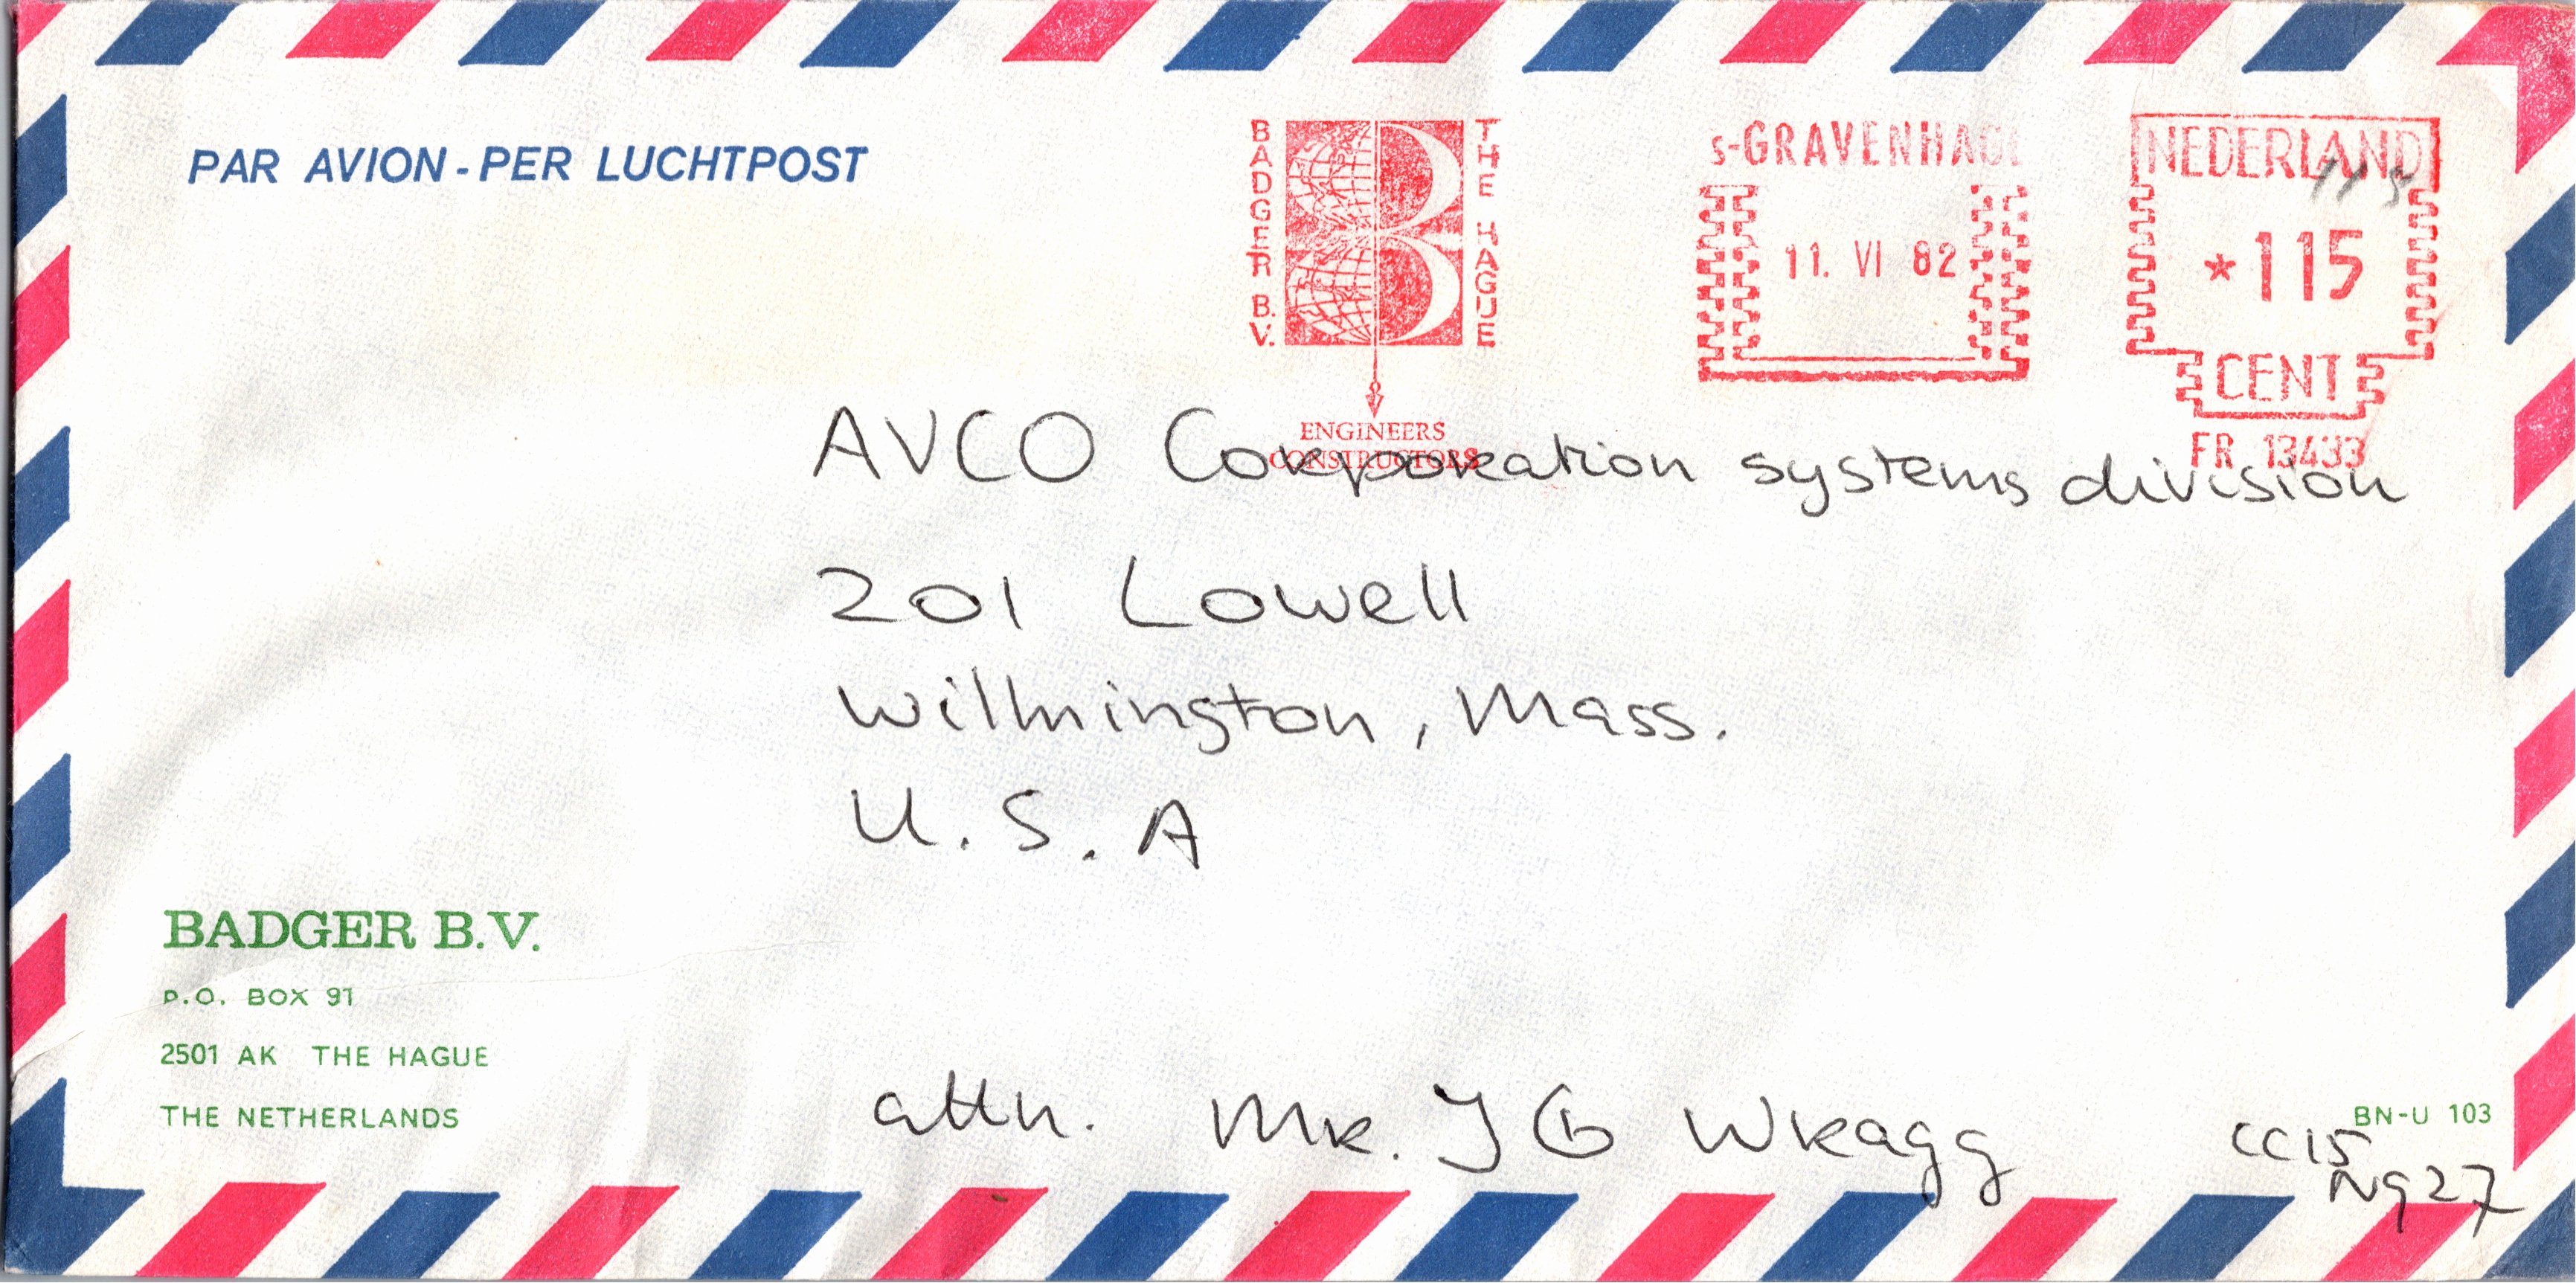 PAR AVION - PER LUCHTPOST
BADGER B.V.
THE HAGUE
ENGINEERS
CONSTRUCTORS
s-GRAVENHAGE
11. VI 82
NEDERLAND
115
*115
CENT
FR. 13433
AVCO Corporation systems division
201 Lowell
Wilmington, Mass.
U.S.A
BADGER B.V.
P.O. BOX 91
2501 AK THE HAGUE
THE NETHERLANDS
attn. Mr. J G Wragg
BN-U 103
CC15
N927